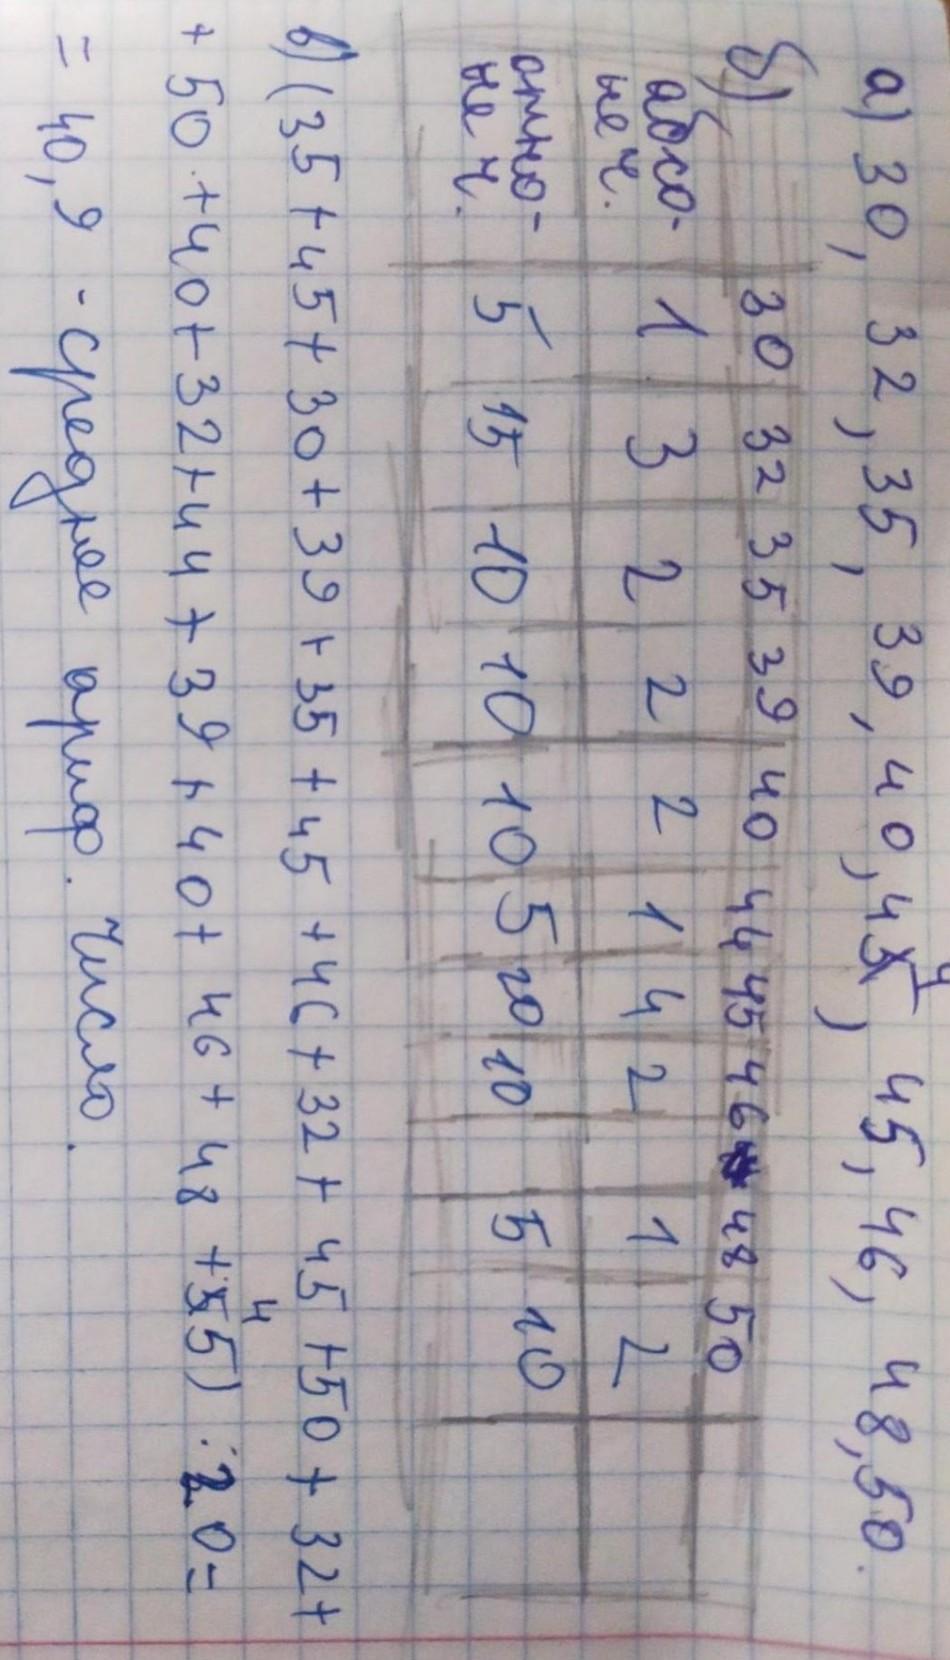 а) 30, 32, 35, 39, 40, 44, 45, 46, 48, 50.
б) 30 32 35 39 40 44 45 46 48 50
абсо-
не ч. 1 3 2 2 2 1 4 2 1 2
отно-
не ч. 5 15 10 10 10 5 20 10 5 10
в) (35 + 45 + 30 + 39 + 35 + 45 + 46 + 32 + 45 + 50 + 32 +
+ 50 + 40 + 32 + 44 + 39 + 40 + 46 + 48 + 45) : 20 =
= 40,9 - среднее ариф. Число.